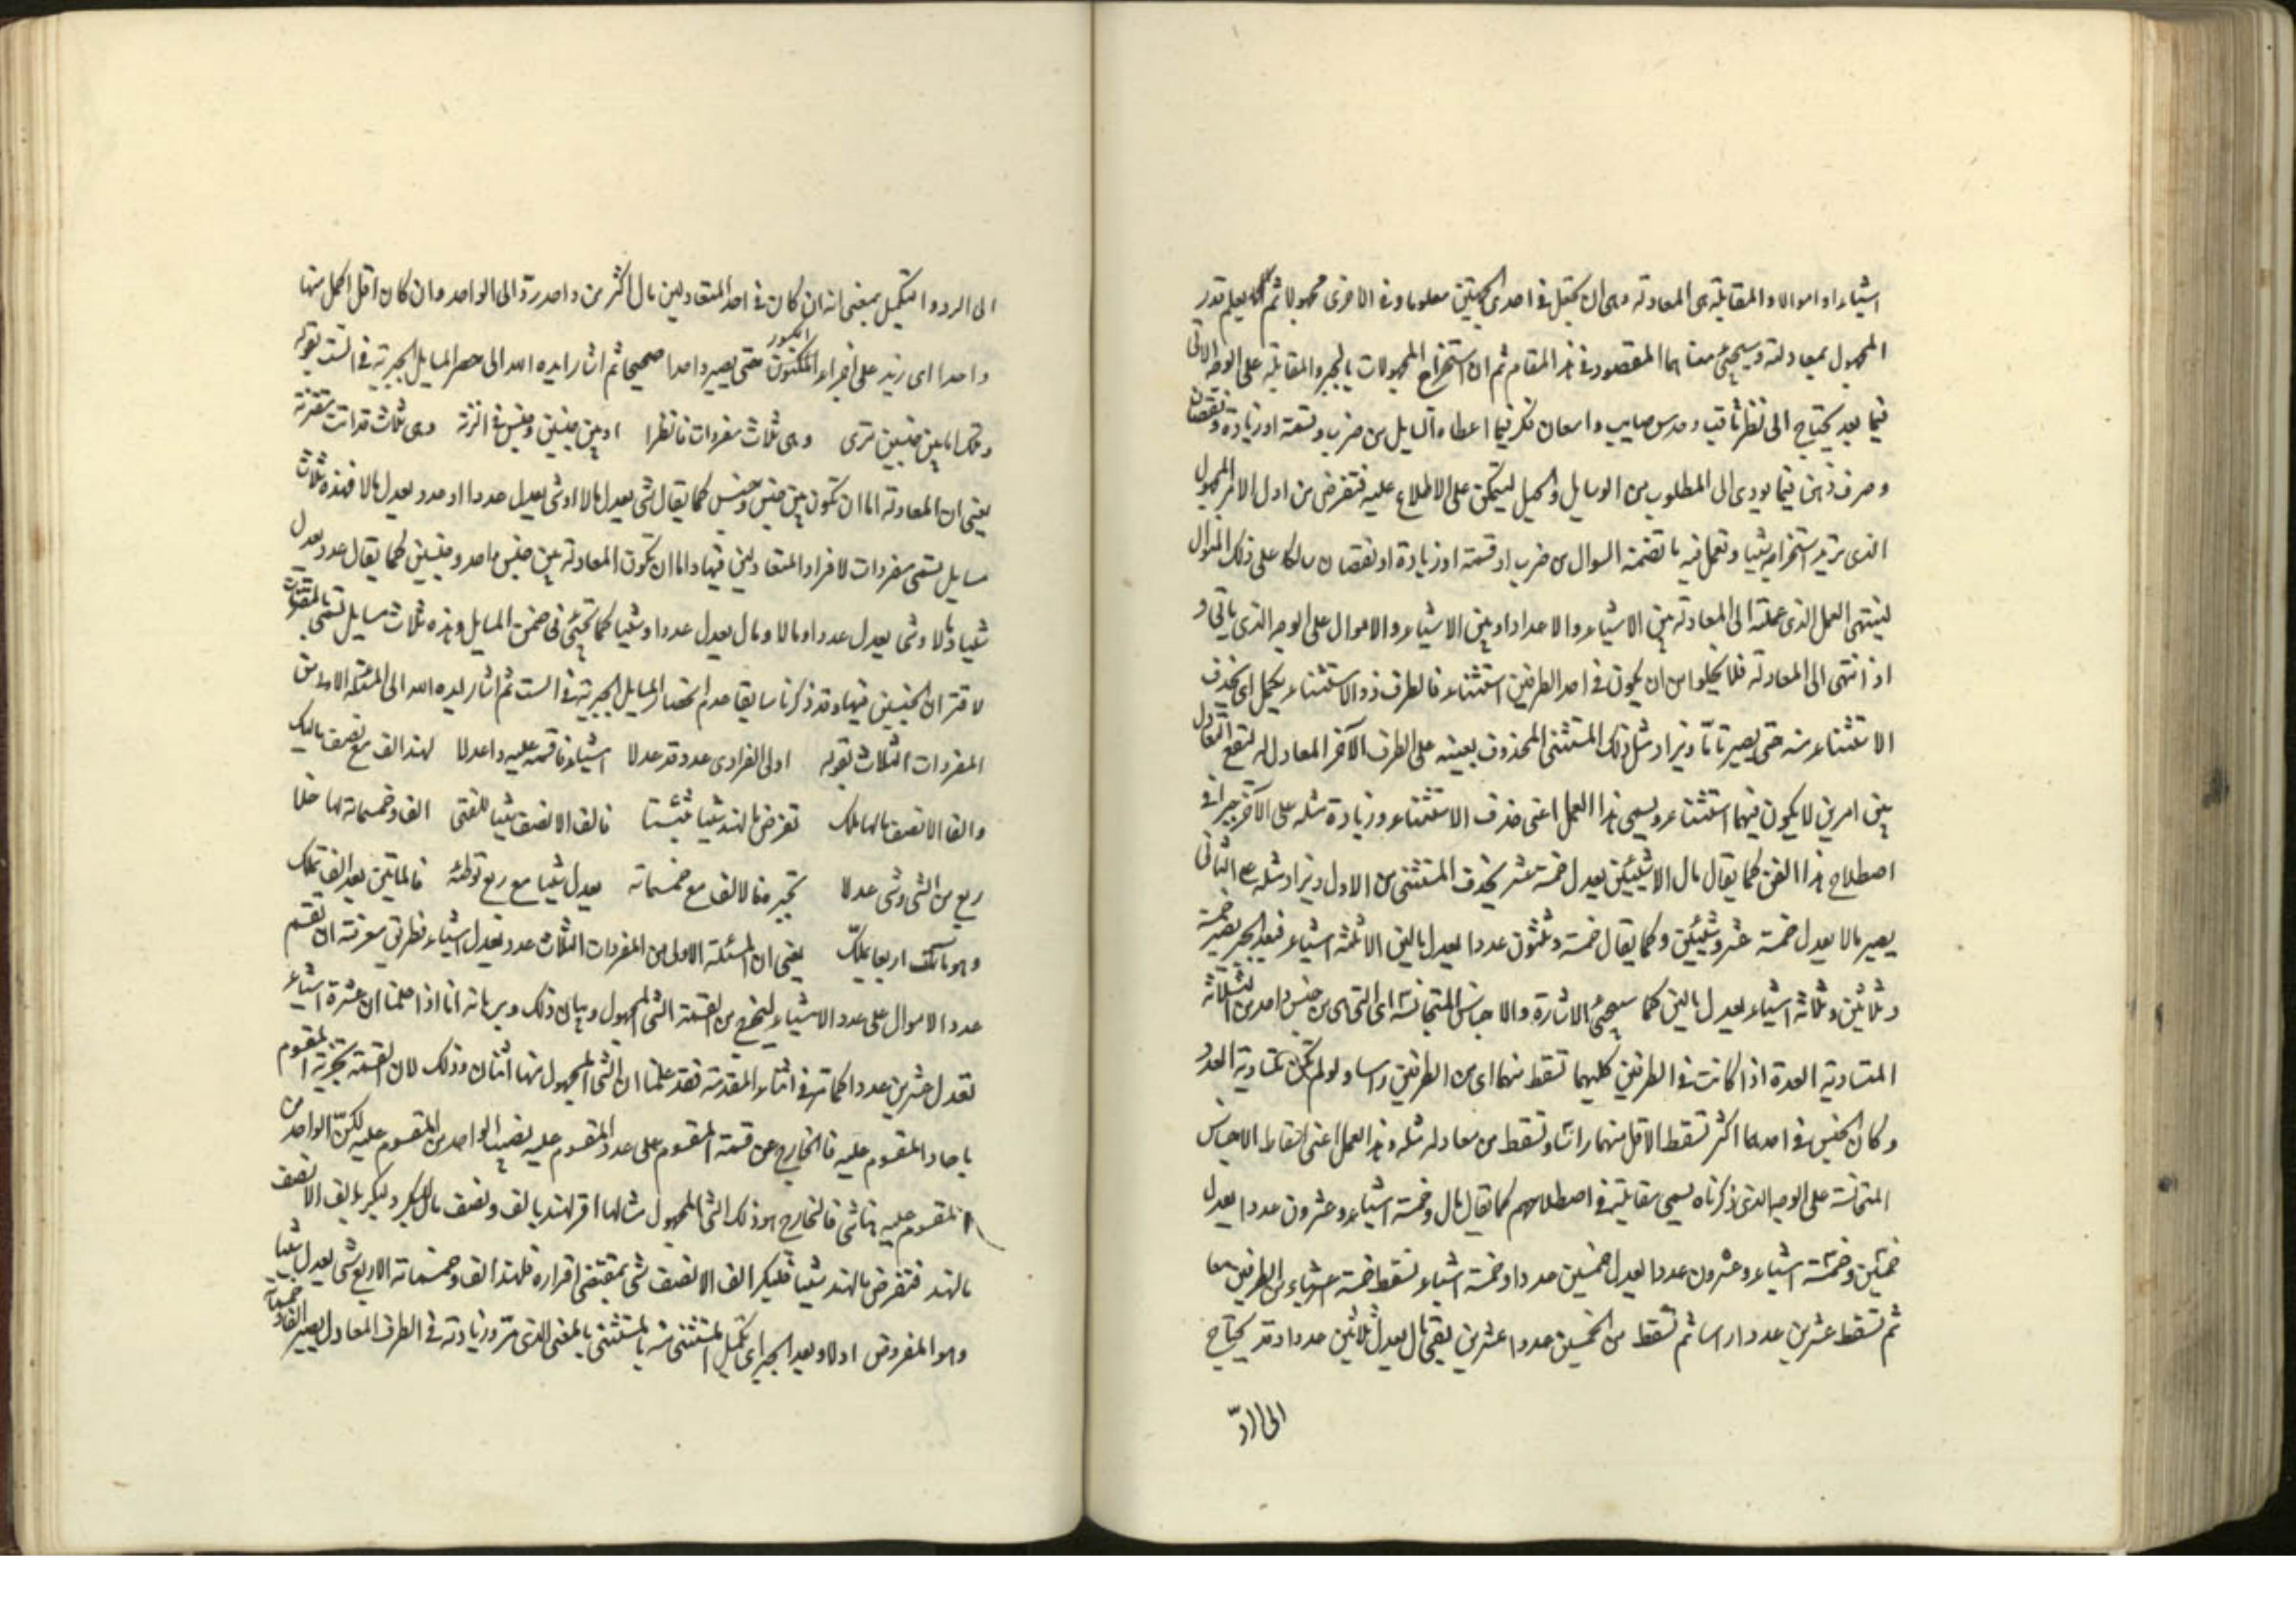 اشياء او اموالا والمقابلة هى المعادلة وهى ان يجعل فى احدى الجهتين معلوما وفى الاخرى مجهولا ثم يعلم قدر
المجهول بمعادلته وسيجىء معناهما المقصود فى هذا المقام ثم ان استخراج المجهولات بالجبر والمقابلة على الوجه الآتى
فيما بعد يحتاج الى نظر ثاقب وحدس صايب وامعان فكر فيما اعطاه السايل من ضرب وقسمة او زيادة ونقصان
وصرف ذهن فيما يودى الى المطلوب من الوسايل والحيل ليتمكن على الاطلاع عليه فتفرض من اول الامر المجهول
الذى تريد استخراجه شيا وتعمل فيه ما تضمنه السوال من ضرب او قسمة او زيادة او نقصان سالكا على ذلك المنوال
لينتهى العمل الذى عملته الى المعادلة بين الاشياء والاعداد او بين الاشياء والاموال على الوجه الذى ياتى و
اذا انتهى الى المعادلة فلا يخلوا من ان يكون فى احد الطرفين استثناء فالطرف ذو الاستثناء يكمل اى يحذف
الاستثناء منه حتى يصير تامّا ويزاد مثل ذلك المستثنى المحذوف بعينه على الطرف الآخر المعادل له لتقع التعادل
بين امرين لا يكون فيهما استثناء ويسمى هذا العمل اعنى حذف الاستثناء وزيادة مثله على الآخر جبرا فى
اصطلاح هذا الفن كما يقال مال الا شيئين يعدل خمسة عشر يحذف المستثنى من الاول ويزاد مثله على الثانى
يصير مالا يعدل خمسة عشر وشيئين وكما يقال خمسة وثلثون عددا يعدل مالين الا ثلثة اشياء فبعد الجبر يصير خمسة
وثلاثين وثلاثة اشياء يعدل مالين كما سيجىء الاشارة والاجناس المتجانسة اى التى هى من جنس واحد من الثلاثة
المتساوية العدة اذا كانت فى الطرفين كليهما تسقط منهما اى من الطرفين راسا ولو لم تكن متساوية العدد
وكان الجنس فى احدهما اكثر تسقط الاقل منهما راسا وتسقط من معادله مثله وهذا العمل اعنى اسقاط الاجناس
المتجانسة على الوجه الذى ذكرناه يسمى مقابلة فى اصطلاحهم كما تقال مال وخمسة اشياء وعشرون عددا يعدل
خمسين وخمسة اشياء وعشرون عددا يعدل خمسين عددا وخمسة اشياء تسقط خمسة اشياء من الطرفين معا
ثم تسقط عشرين عددا راسا ثم تسقط من الخمسين عددا عشرين يبقى مال يعدل ثلاثين عددا وقد يحتاج
الى الردّ
الى الرد والتكميل بمعنى انه ان كان فى احد المتعادلين مال اكثر من واحد ردّ الى الواحد وان كان اقل اكمل منها
واحدا اى زيد على اجزاء المكسور حتى يصير واحدا صحيحا ثم اشار ايده الله الى حصر المسايل الجبرية فى الست بقوله
وتلك اما بين جنسين ترى وهى ثلاث مفردات فانظرا او بين جنسين وجنس فى الزنة وهى ثلاث قد اتت مقترنة
يعنى ان المعادلة اما ان تكون بين جنس وجنس كما يقال شى يعدل مالا او شى يعدل عددا او عدد يعدل مالا فهذه ثلاث
مسايل تسمى مفردات لافراد المتعادلين فيها واما ان تكون المعادلة بين جنس واحد وجنسين كما يقال عدد يعدل
شيا ومالا وشى يعدل عددا ومالا ومال يعدل عددا وشيا كما تجىء فى ضمن المسايل وهذه ثلاث مسايل تسمى بالمقترنات
لاقتران الجنسين فيها وقد ذكرنا سابقا عدم انحصار المسايل الجبرية فى الست ثم اشار ايده الله الى المسئلة الاولى من
المفردات الثلاث بقوله اولى الفرادى عدد قد عدلا اشياء فاقسمه عليه واعدلا لهند الف مع نصف ماليك
والف الا نصف مالها ملك تفرض ما لهند شيا مثبتا فالف الا نصف شيا للفتى الف وخمسمائة لها خلا
ربع من الشى وشى عدلا تجبر هنا لالف مع خمسمائة يعدل شيا مع ربع توطئه فالمايتين بعد الف تملك
وهو باربعمائة يملك يعنى ان المسئلة الاولى من المفردات الثلاث عدد يعدل اشياء فطريق معرفته ان تقسم
عدد الاموال على عدد الاشياء ليخرج من القسمة الشى المجهول وبيان ذلك وبرهانه انا اذا علمنا ان عشرة اشياء
تعدل عشرين عددا كما تر فى اثناء المقدمة فقد علمنا ان الشى المجهول منها اثنان وذلك لان القسمة تجزية المقسوم
باحاد المقسوم عليه فالخارج عن قسمة المقسوم على عدد المقسوم عليه نصيب الواحد من المقسوم عليه لكنّ الواحد من
المقسوم عليه هنا شى فالخارج هو ذلك الشى المجهول مثالها اقر لهند بالف ونصف مال لبكر ولبكر بالف الا نصف
مالهند فتفرض مالهند شيا فلبكر الف الا نصف شى بمقتضى اقراره فلهند الف وخمسمائة الا ربع شى يعدل شيا
وهو المفروض اولا وبعد الجبر اى تكميل المستثنى منه بالمستثنى بالمعنى الذى مرّ وزيادته فى الطرف المعادل يصير الف وخمسمائة